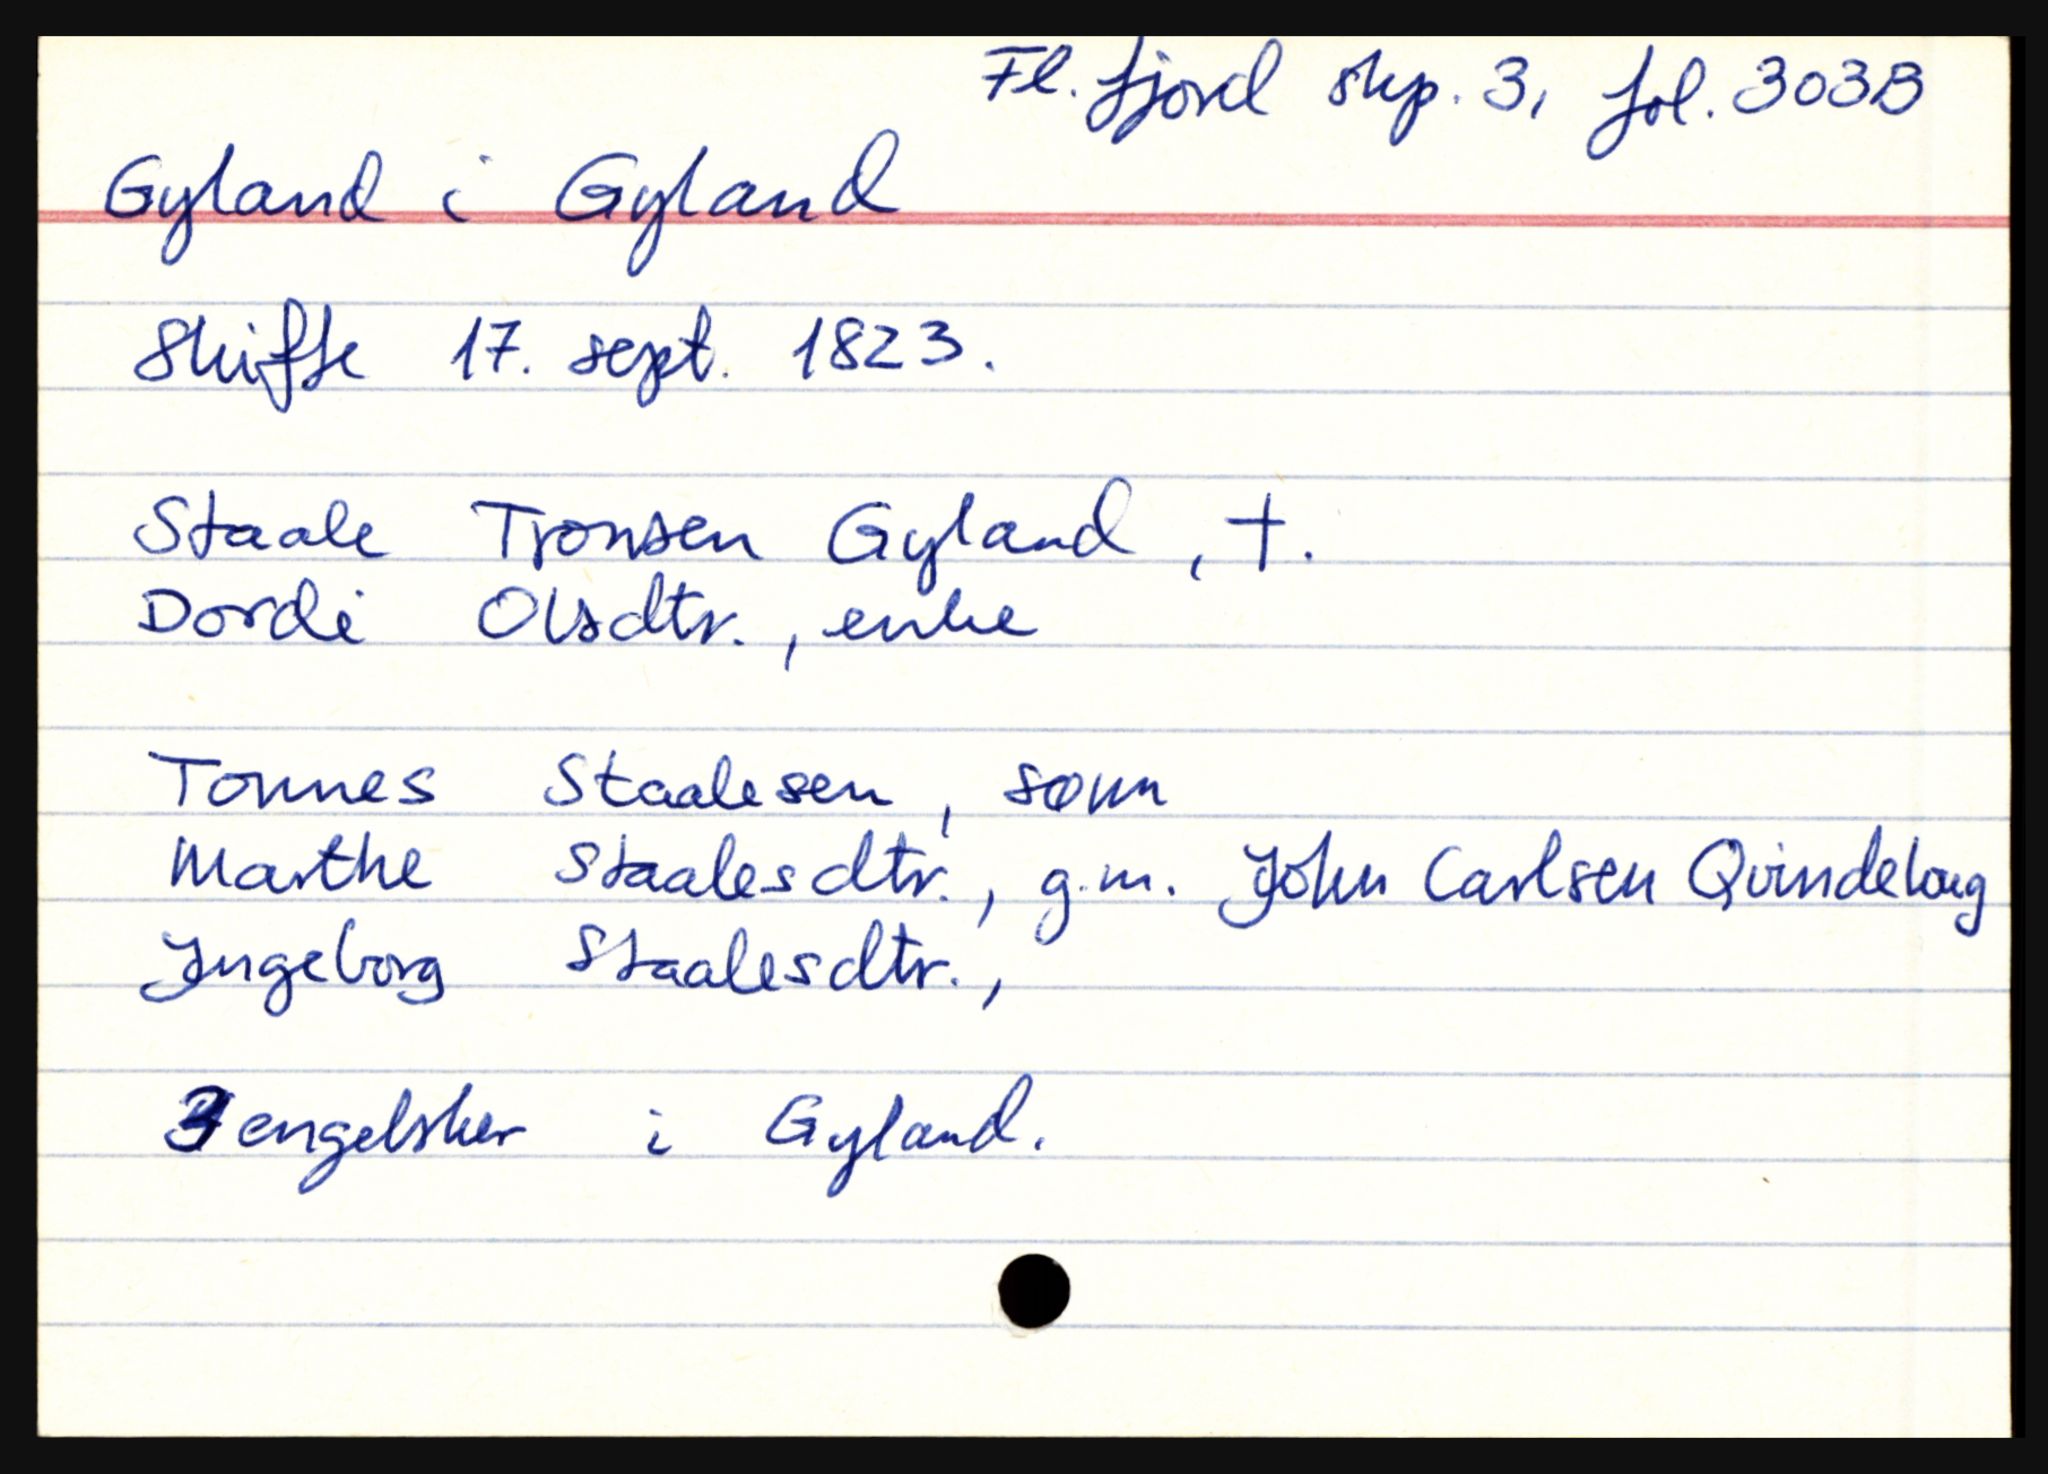 Fl.fjord skp. 3, fol. 303B
Gyland i Gyland
Skifte 17. sept. 1823.
Staale Tronsen Gyland, †.
Dordi Olsdtr., enke
Tonnes Staalesen, sønn
Marthe Staalesdtr., g.m. John Carlsen Qvindeloug
Ingeborg Staalesdtr.,
3 engelsker i Gyland.